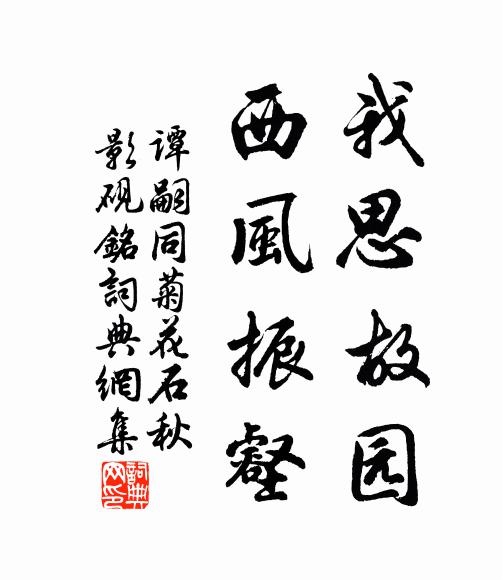 我思故园
西風振壑
谭嗣同菊花石秋
影砚銘詞典網集